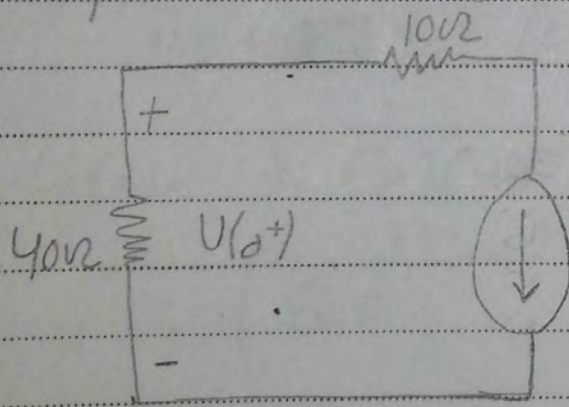 10Ω
+
40Ω U(0⁺)
-